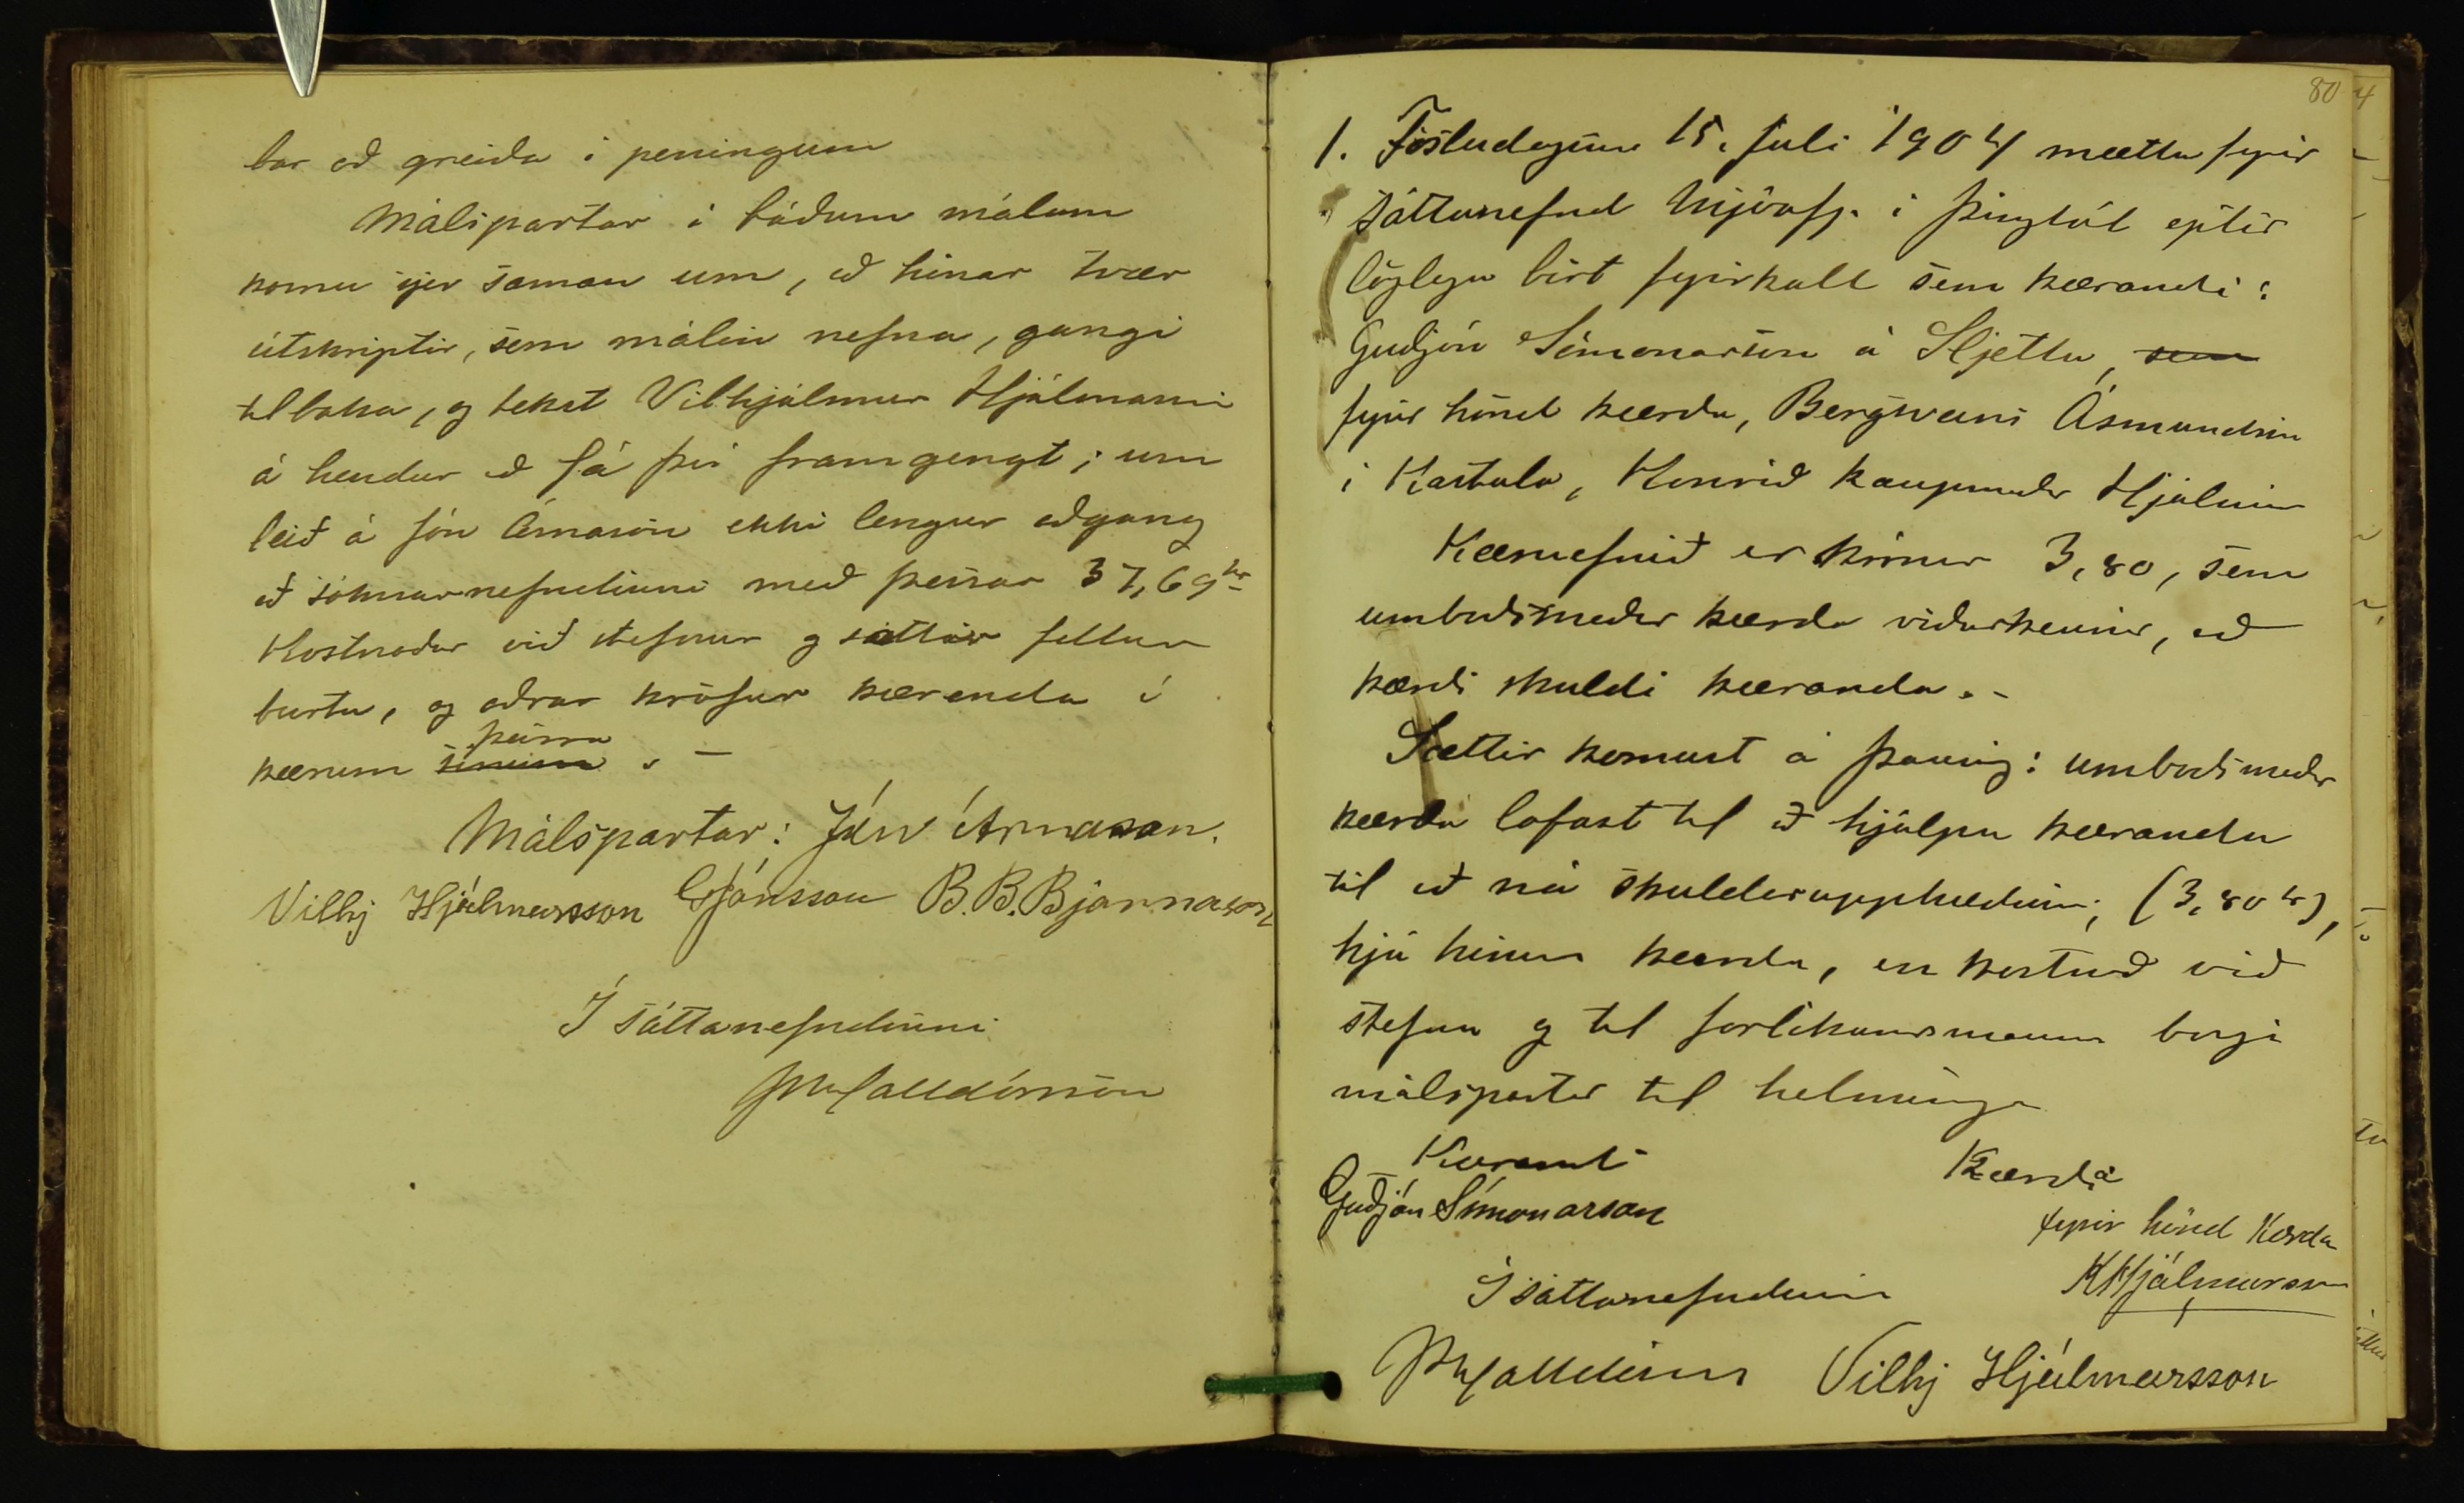 bar að greiða í peningum
Málspartar í báðum málum
komu sjer saman um, að hinar tvær
útskriptir, sem málin nefna, gangi
tilbaka, og tekst Vilhjálmur Hjálmarss
á hendur að fá því framgengt; um
leið á Jón Árnason ekki lengur aðgang
að sóknarnefndinni með þessar 37,69 kr
Kostnaður við stefnur og sáttir fellur
burtu, og aðrar kröfur kærenda í
kærum sínum þeirra . —
Málspartar: Jón Árnason.
Vilhj Hjálmarsson GJónsson B.B.Bjarnason
Í sáttanefndinni
ÞMHalldórsson
80
1. Föstudaginn 15. Júlí 1904 mættu fyrir
sáttanefnd Mjóafj. í þinghúsi eptir
löglega birt fyrirkall sem kærandi:
Guðjón Símonarson á Sljettu, sem
fyrir hönd kærða, Bergsveins Ásmundssn
í Kastala, Konráð kaupmaðr Hjálmars
Kæruefnið er krónur 3,80, sem
umboðsmaður kærða viðurkennir, að
kærði skuldi kæranda. -
Sættir komust á þannig: umboðsmaðr
kærða lofast til að hjálpa kæranda
til að ná skuldarupphæðinni, (3,80 kr),
hjá hinum kærða, en kostnað við
stefnu og til forlíkunarmanna borgi
málspartar til helminga
Kærandi Kærða
Guðjón Símonarson fyrir hönd Kærða
KHjálmarsson
Í sáttanefndinni
ÞMHalldórss Vilhj Hjálmarsson